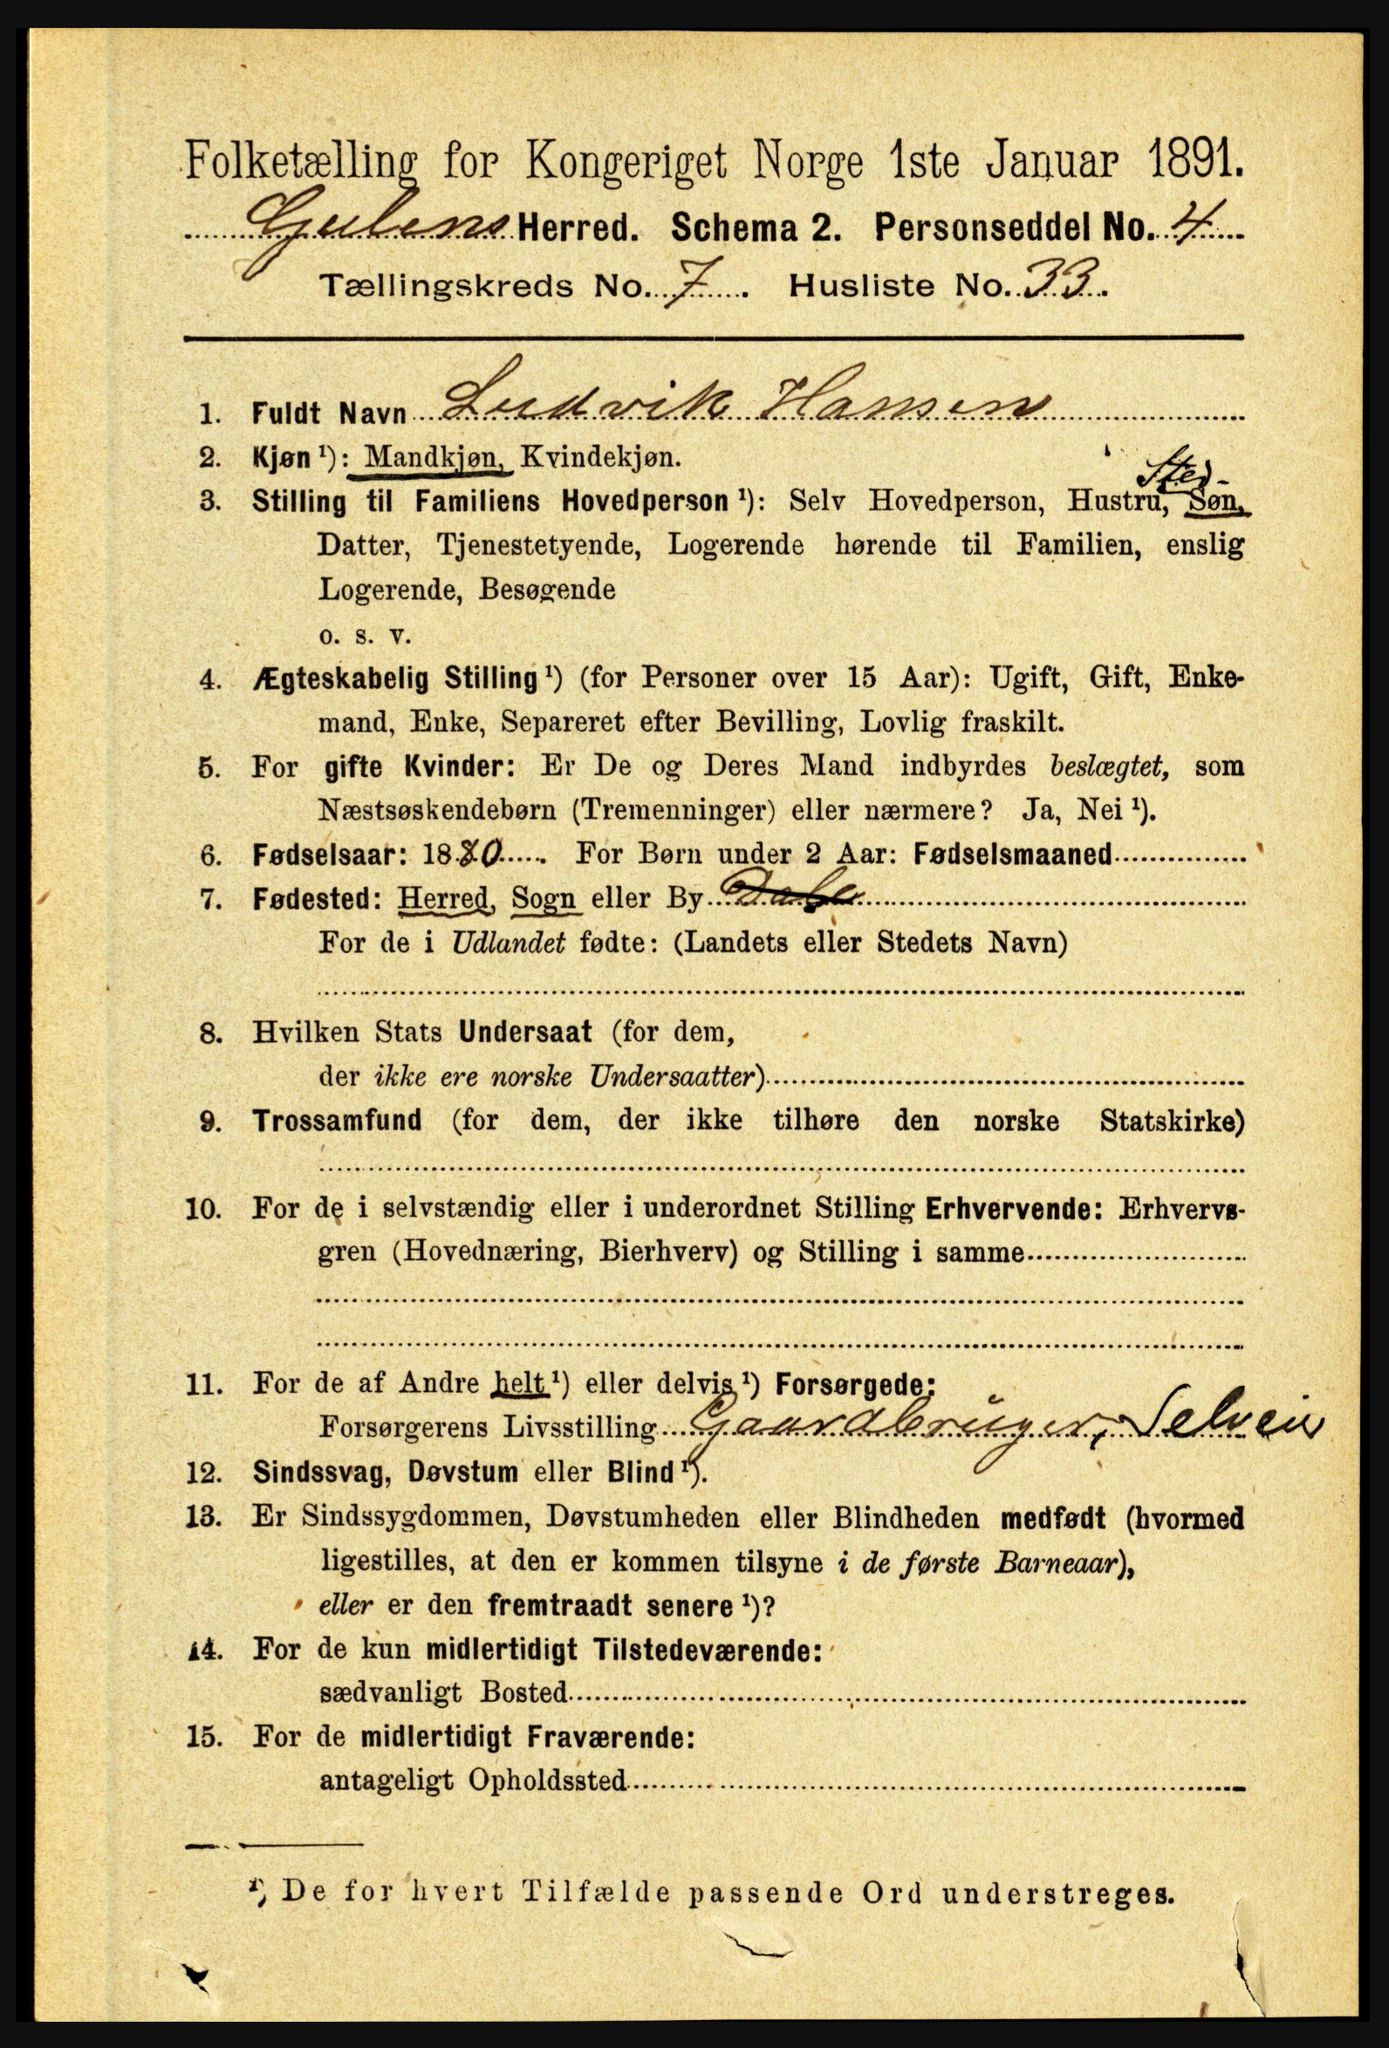 Folketælling for Kongeriget Norge 1ste Januar 1891.
Gulens Herred. Schema 2. Personseddel No. 4
Tællingskreds No. 7. Husliste No. 33.
1. Fuldt Navn Ludvik Hansen
2. Kjøn ¹): Mandkjøn, Kvindekjøn.
Sted-
3. Stilling til Familiens Hovedperson ¹): Selv Hovedperson, Hustru, Søn,
Datter, Tjenestetyende, Logerende hørende til Familien, enslig
Logerende, Besøgende
o. s. v.
4. Ægteskabelig Stilling ¹) (for Personer over 15 Aar): Ugift, Gift, Enke-
mand, Enke, Separeret efter Bevilling, Lovlig fraskilt.
5. For gifte Kvinder: Er De og Deres Mand indbyrdes beslægtet, som
Næstsøskendebørn (Tremenninger) eller nærmere? Ja, Nei ¹).
6. Fødselsaar: 1880. For Børn under 2 Aar: Fødselsmaaned
7. Fødested: Herred, Sogn eller By
For de i Udlandet fødte: (Landets eller Stedets Navn)
8. Hvilken Stats Undersaat (for dem,
der ikke ere norske Undersaatter)
9. Trossamfund (for dem, der ikke tilhøre den norske Statskirke)
10. For de i selvstændig eller i underordnet Stilling Erhvervende: Erhvervs-
gren (Hovednæring, Bierhverv) og Stilling i samme
11. For de af Andre helt ¹) eller delvis ¹) Forsørgede:
Forsørgerens Livsstilling Gaardbruger, Selveier
12. Sindssvag, Døvstum eller Blind ¹).
13. Er Sindssygdommen, Døvstumheden eller Blindheden medfødt (hvormed
ligestilles, at den er kommen tilsyne i de første Barneaar),
eller er den fremtraadt senere ¹)?
14. For de kun midlertidigt Tilstedeværende:
sædvanligt Bosted
15. For de midlertidigt Fraværende:
antageligt Opholdssted
¹) De for hvert Tilfælde passende Ord understreges.